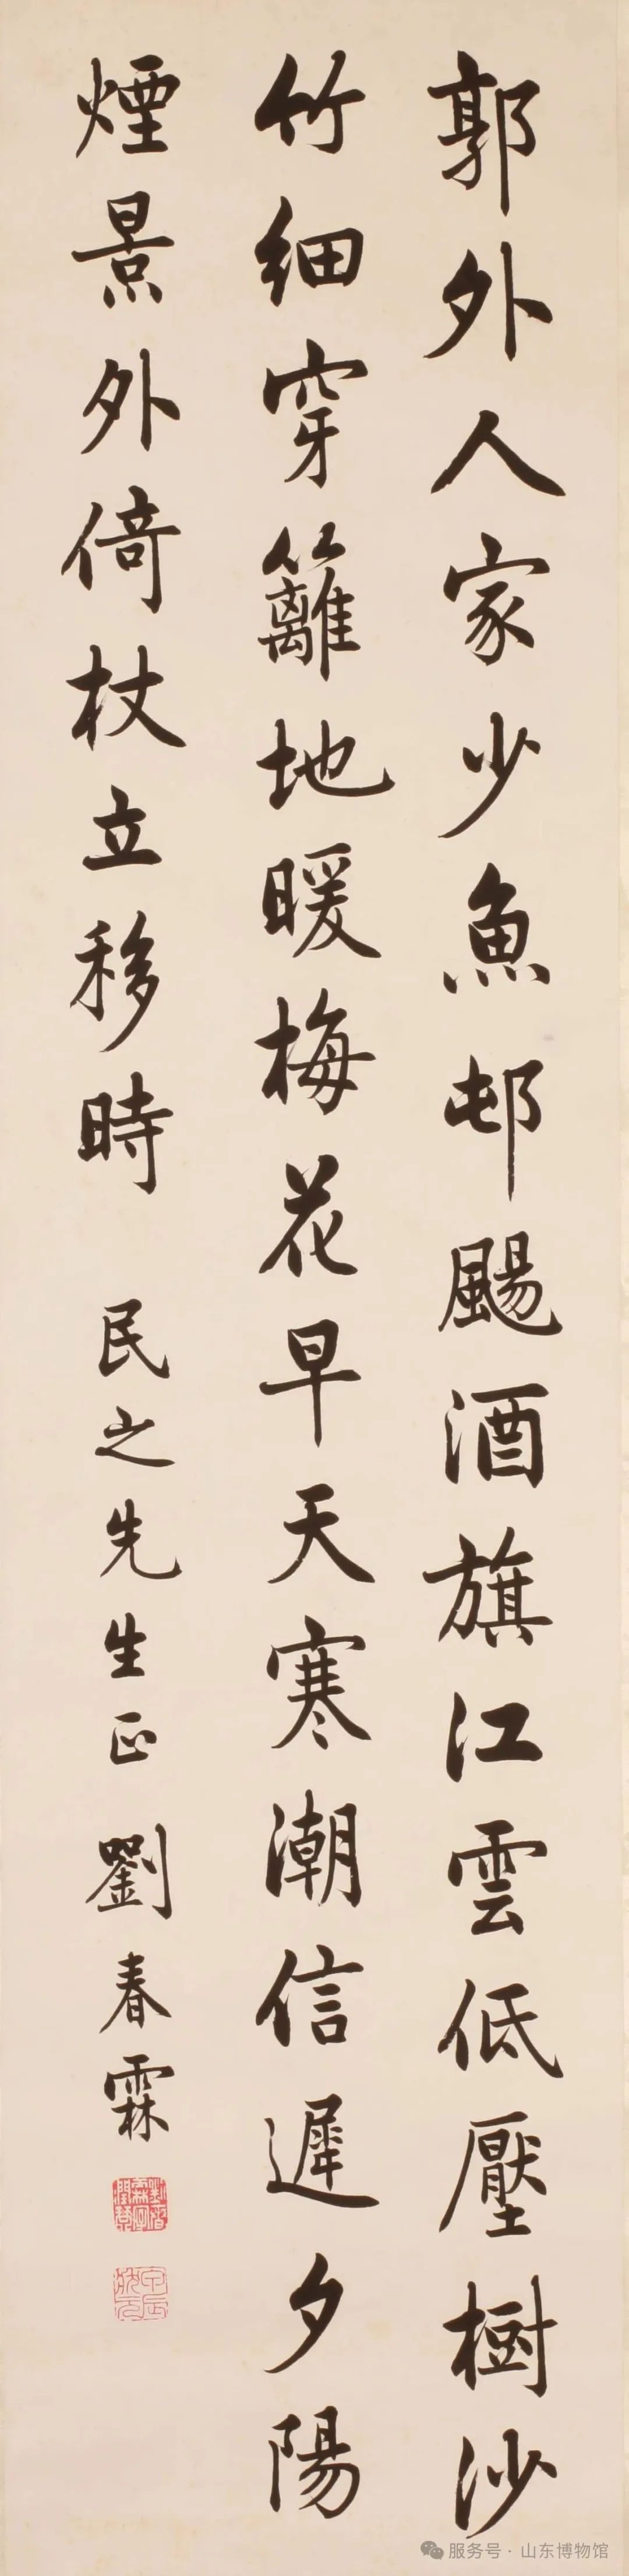 郭外人家少魚邨颺酒旗江雲低壓樹沙
竹細穿籬地暖梅花早天寒潮信遲夕陽
煙景外倚杖立移時
民之先生正 劉春霖
服务号·山东博物馆